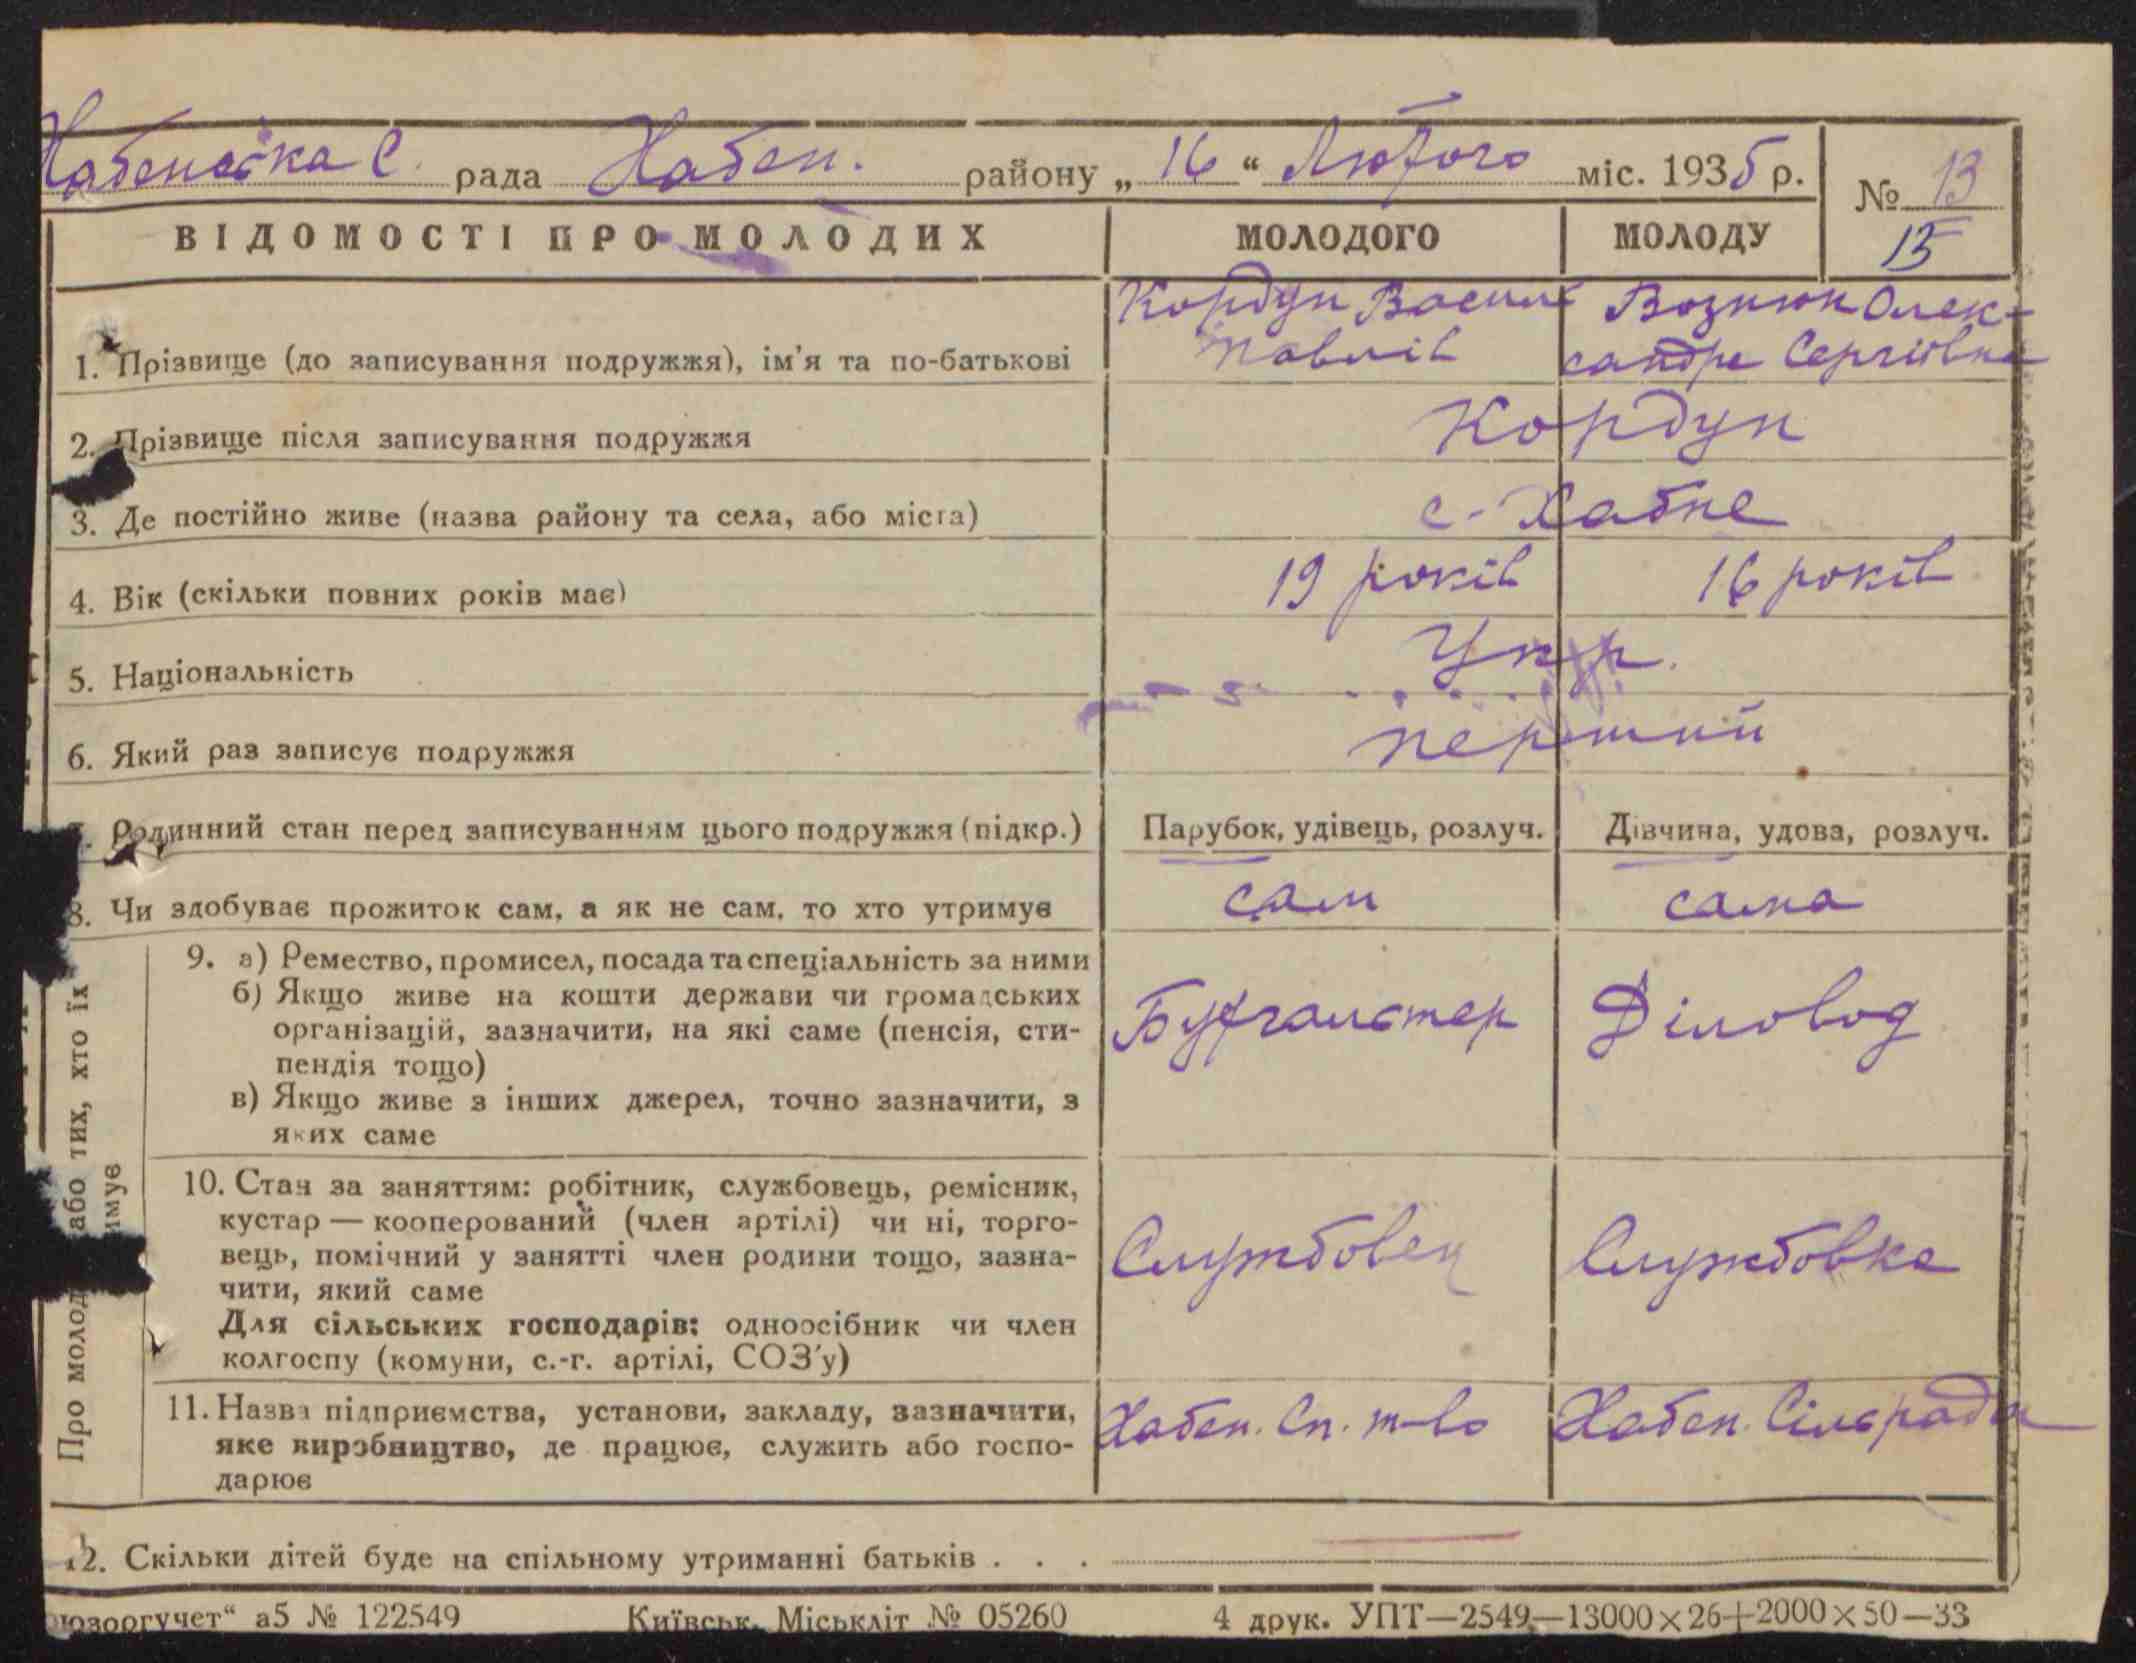 Хабенська С. рада Хабен. району „16“ Лютого міс. 1935 р.
№ 13
15
ВІДОМОСТІ ПРО МОЛОДИХ МОЛОДОГО МОЛОДУ
Кордун Василь Вознюк Олек-
1. Прізвище (до записування подружжя), ім’я та по-батькові Павлів сандра Сергіївна
2. Прізвище після записування подружжя Кордун
3. Де постійно живе (назва району та села, або міста) с. Хабне
4. Вік (скільки повних років має) 19 років 16 років
5. Національність Укр.
6. Який раз записує подружжя перший
7. Родинний стан перед записуванням цього подружжя (підкр.) Парубок, удівець, розлуч. Дівчина, удова, розлуч.
8. Чи здобуває прожиток сам, а як не сам, то хто утримує сам сама
Про молод або тих, хто їх
имує
9. а) Ремество, промисел, посада та спеціальність за ними
б) Якщо живе на кошти держави чи громадських
організацій, зазначити, на які саме (пенсія, сти-
пендія тощо)
в) Якщо живе з інших джерел, точно зазначити, з
яких саме
Бухгальтер Діловод
10. Стан за заняттям: робітник, службовець, ремісник,
кустар — кооперований (член артілі) чи ні, торго-
вець, помічний у занятті член родини тощо, зазна-
чити, який саме
Для сільських господарів: одноосібник чи член
колгоспу (комуни, с.-г. артілі, СОЗ’у)
Службовец Службовка
11. Назва підприємства, установи, закладу, зазначити,
яке виробництво, де працює, служить або госпо-
дарює
Хабен. Сп. т-во Хабен. Сільрада
12. Скільки дітей буде на спільному утриманні батьків . . .
юзоргучет“ а5 № 122549 Київськ. Міськліт № 05260 4 друк. УПТ—2549—13000×26+2000×50—33